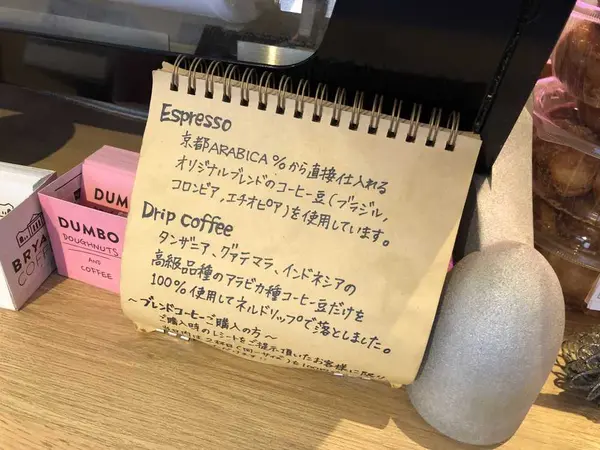 Espresso
京都ARABICA%から直接仕入れる
オリジナルブレンドのコーヒー豆(ブラジル,
コロンビア,エチオピア)を使用しています。
Drip coffee
タンザニア、グァテマラ、インドネシアの
高級品種のアラビカ種コーヒー豆だけを
100%使用してネルドリップで落としました。
～ブレンドコーヒーご購入の方～
ご購入時のレシートをご提示頂いたお客様に限り
DUMBO
DOUGHNUTS
AND
COFFEE
DUM
BRYA